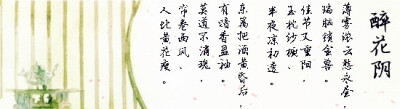 醉花阴
薄雾浓云愁永昼，
瑞脑销金兽。
佳节又重阳，
玉枕纱橱，
半夜凉初透。
东篱把酒黄昏后，
有暗香盈袖。
莫道不消魂，
帘卷西风，
人比黄花瘦。